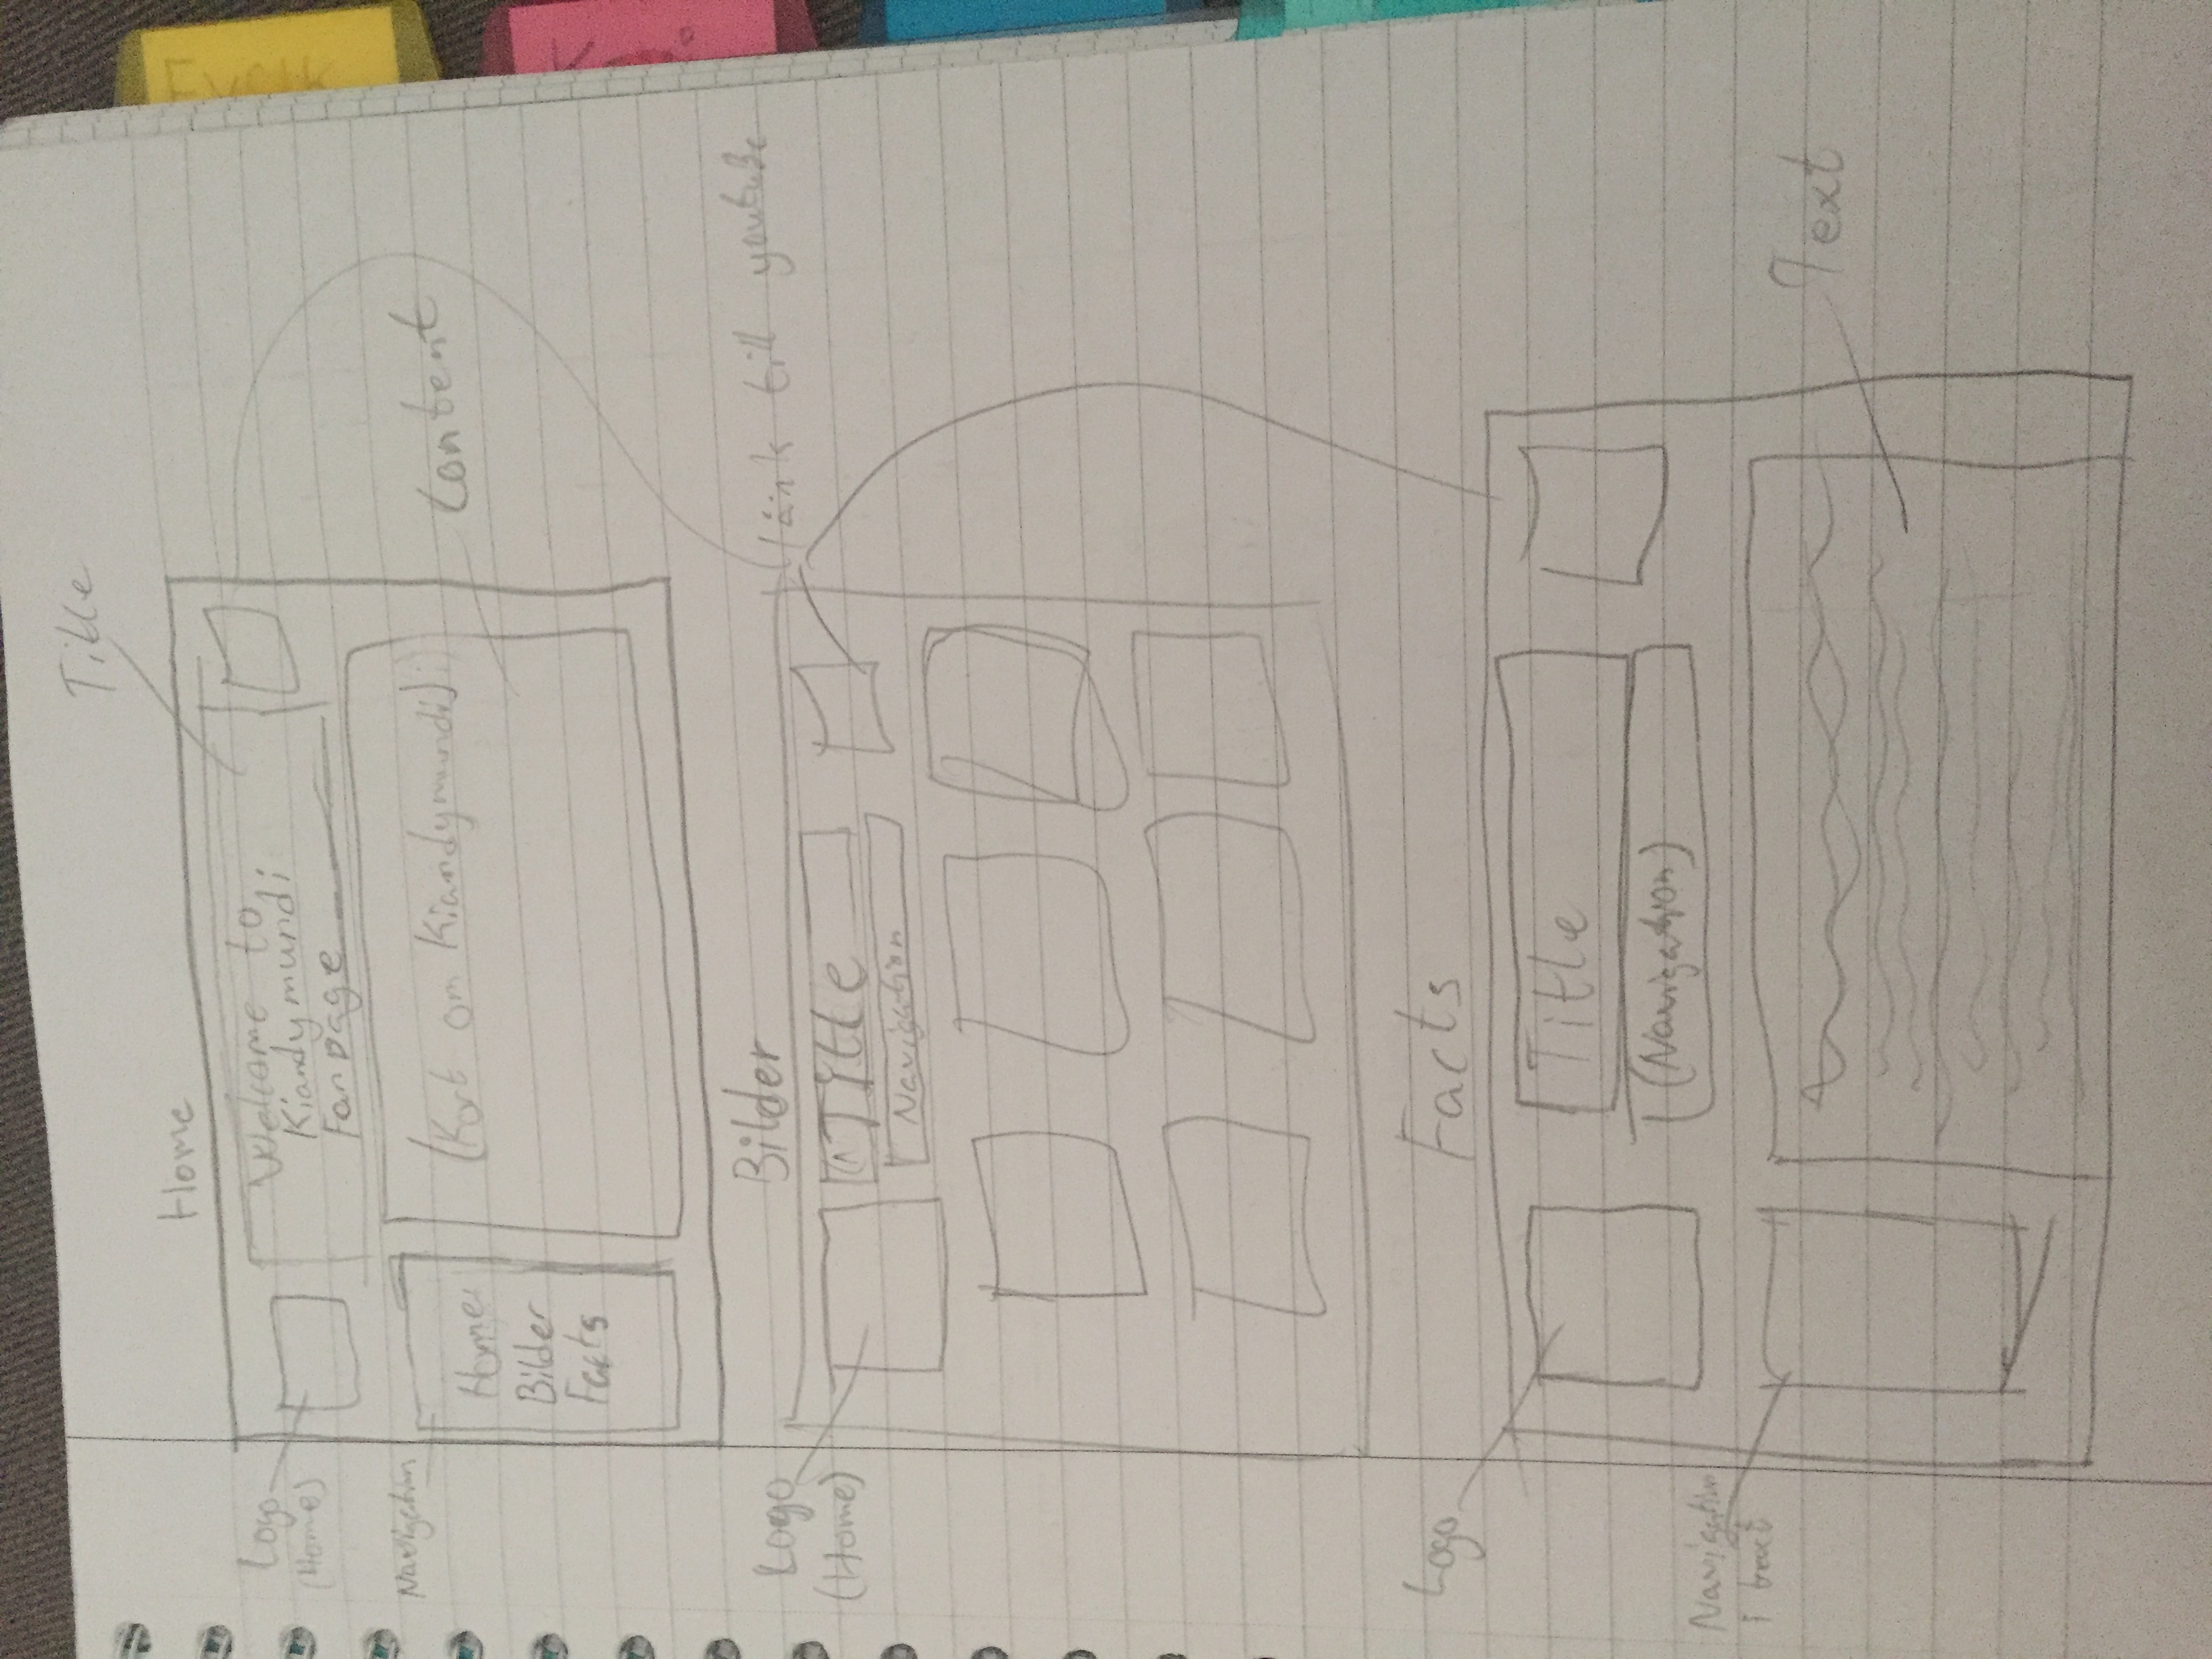 Title
Home
Logo
(Home)
Welcome to
Kiandymundi
Fanpage
Navigation
Home
Bilder
Facts
(Kort om Kiandymundi)
Content
Bilder
Logo
(Home)
Title
Navigation
länk till youtube
Facts
Logo
Title
(Navigation)
Navigation
i text
Text